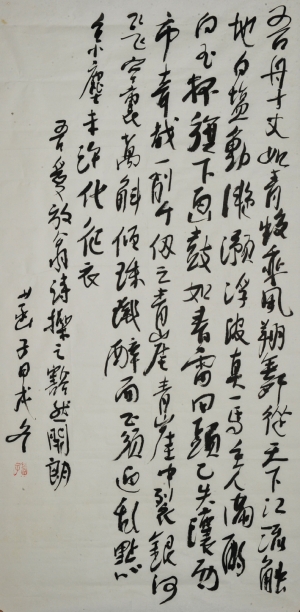 吾舟十丈如青蛟乘風翔舞從天下江流觸
地白鹽動灩澦浮波真一馬主人滿酌
白玉杯旗下畫鼓如春雷回頭已失瀼西
市奇哉一削千仞之青崖青崖中裂銀河
飛空裏萬斛傾珠璣醉面正須迎亂點
京塵未許化征衣
吾愛放翁詩操之豁然開朗
子甲戌冬